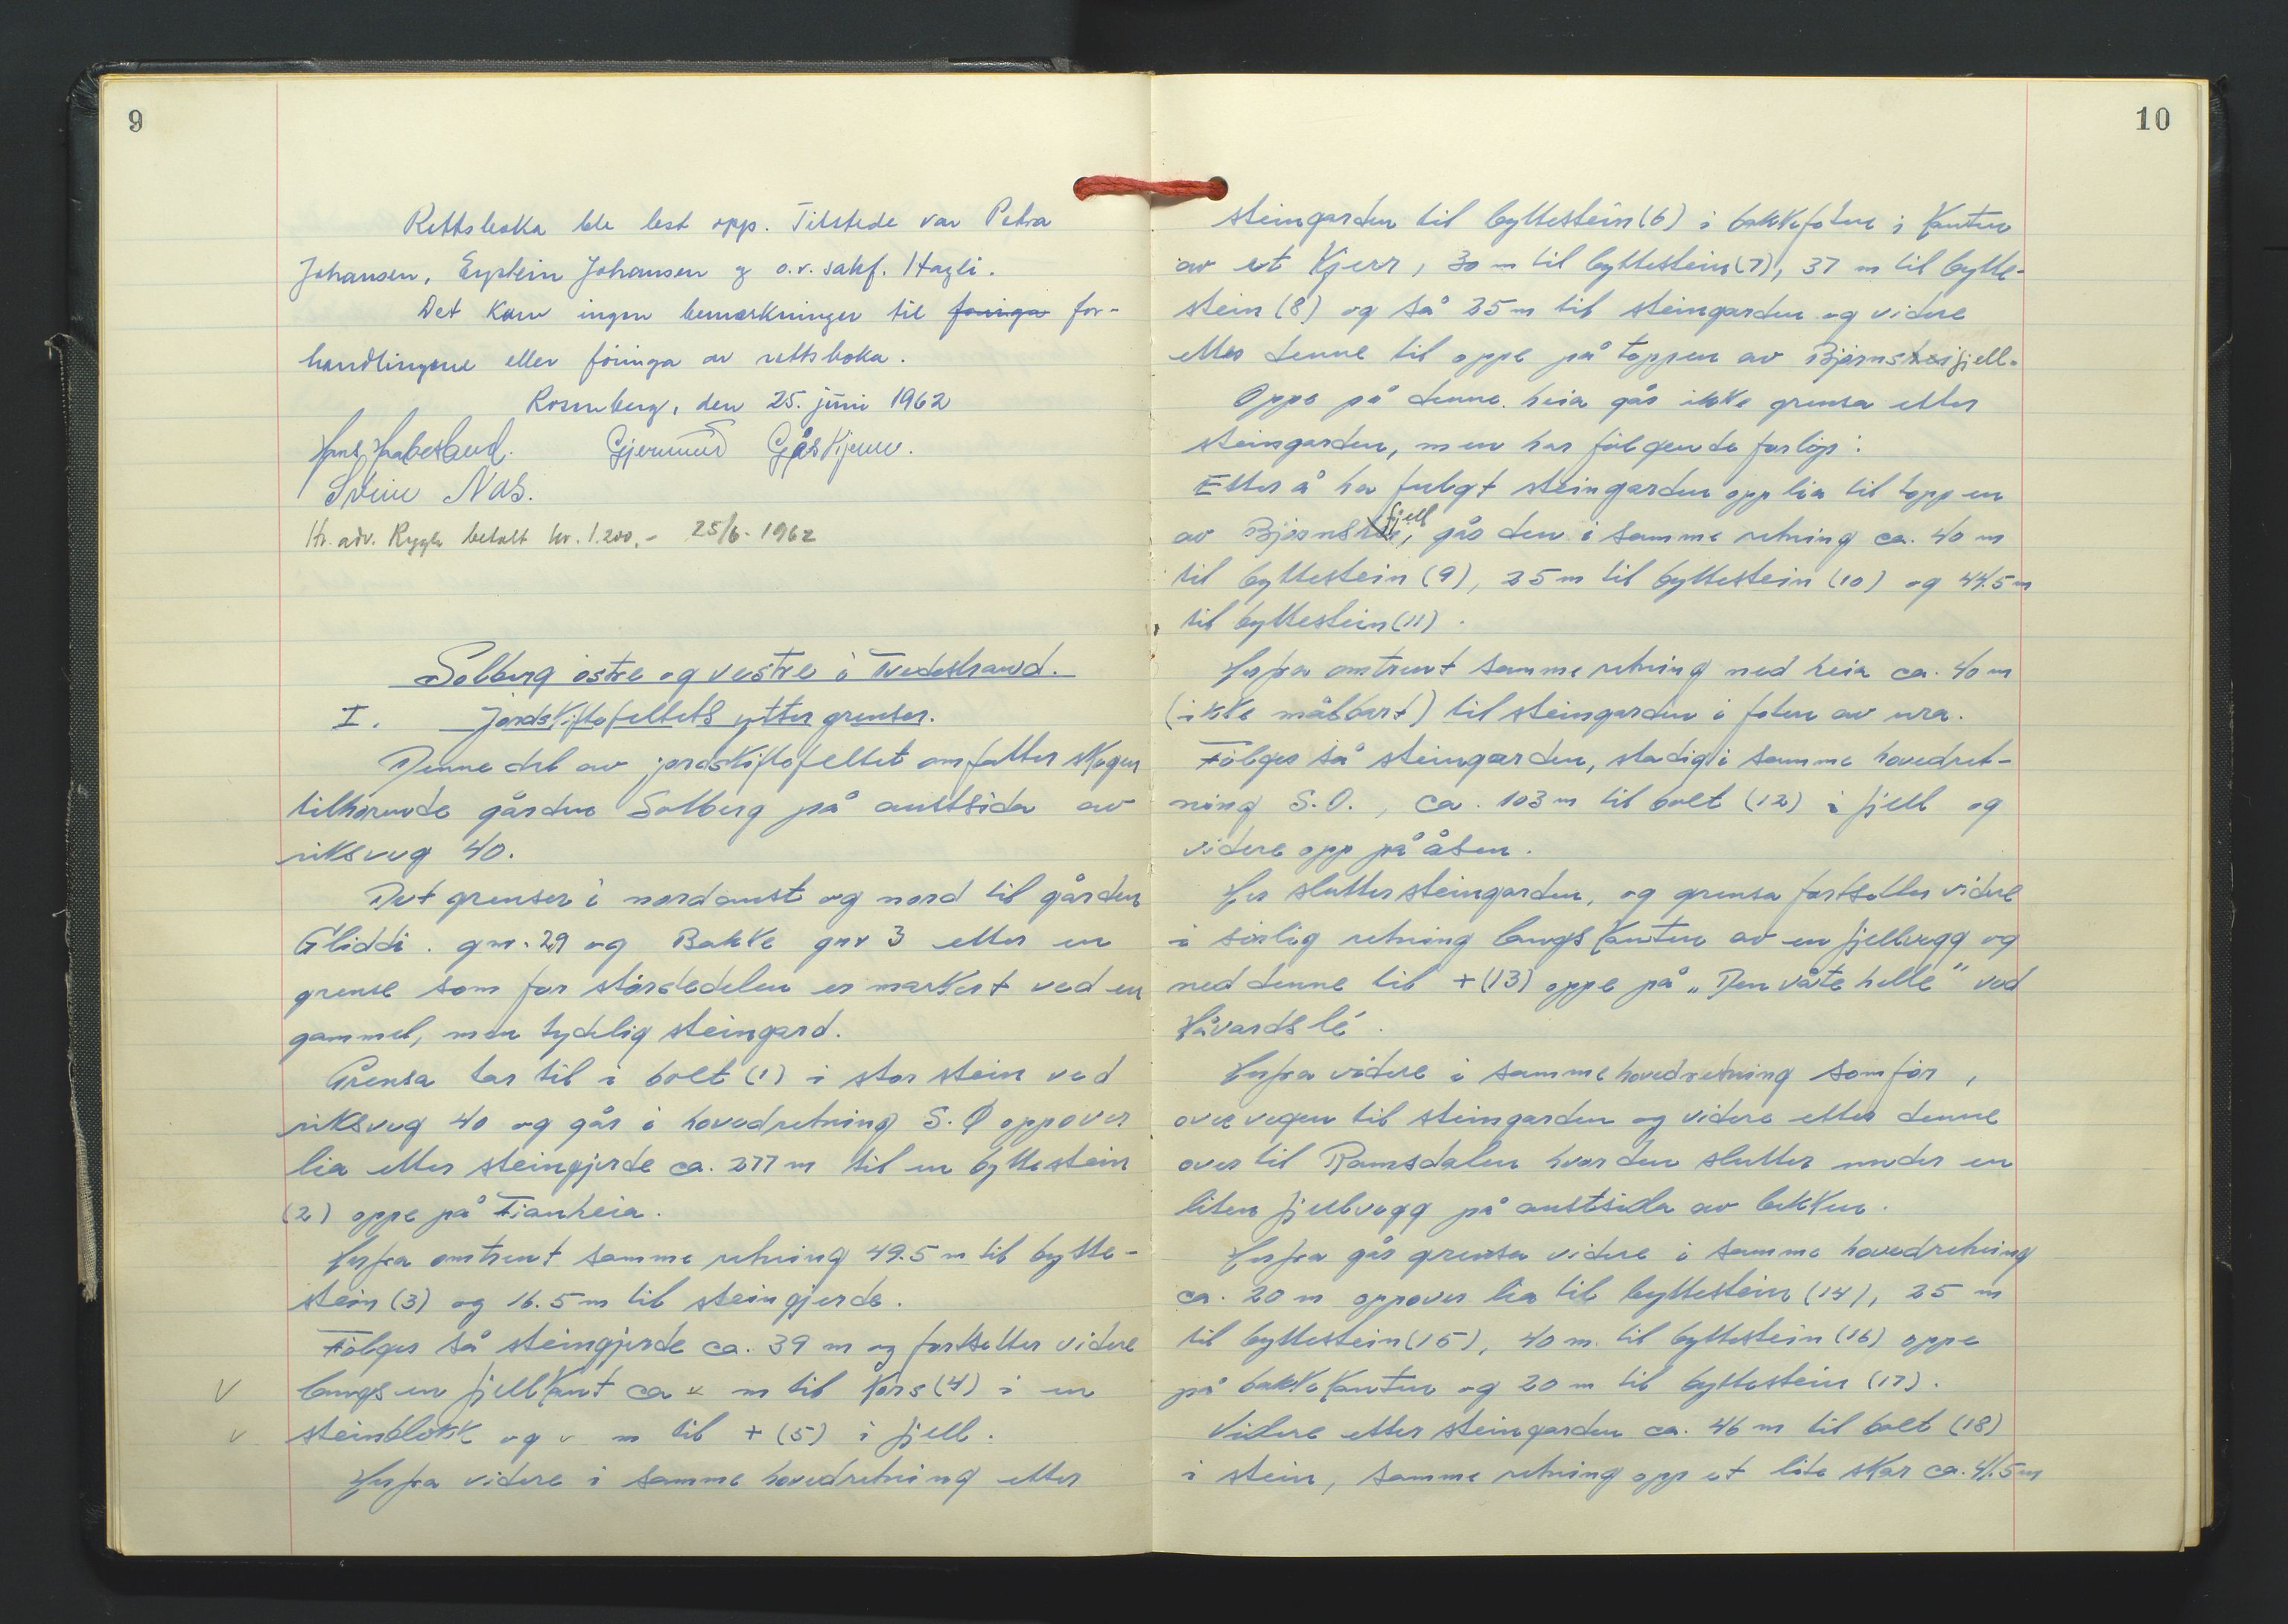 9
Rettsboka ble lest opp. Tilstede var Petra
Johansen, Eystein Johansen g o.r. sakf. Hagli.
Det kom ingen bemerkninger til foringa for-
handlingene eller föringa av rettsboka.
Rosenberg, den 25. juni 1962
Gjermund Gåskjenn.
Svein Nås.
Hr. adv. Rygh betalt kr. 1.200,- 25/6-1962
Solberg östre og vestre i Tvedestrand.
I. Jordskiftefeltets yttergrenser.
Denne del av jordskiftefeltet omfatter skogen
tilhörende gården Solberg på austsida av
riksveg 40.
Det grenser i nordaust og nord til gården
Gliddi. gnr. 29 og Bakke gnr 3 etter en
grense som for störstedelen er markert ved en
gammel, men tydelig steingard.
Grensa tar til i bolt (1) i stor stein ved
riksveg 40 og går i hovedretning S.Ø oppover
lia etter steingjerde ca. 277 m til en byttestein
(2) oppe på Tianheia.
Herfra omtrent samme retning 49.5 m til bytte-
stein (3) og 16.5 m til steingjerde.
Fölger så steingjerde ca. 39 m og fortsetter videre
v langs en fjellkant ca v m til kors (4) i en
v steinblokk og v m til + (5) i fjell.
Herfra videre i samme hovedretning etter
10
steingarden til byttestein (6) i bakkefoten i kanten
av et kjerr, 30 m til byttestein (7), 37 m til bytte-
stein (8) og så 35 m til steingarden og videre
etter denne til oppe på toppen av Bjørnsfjell.
Oppe på denne heia går ikke grensa etter
steingarden, men har fölgende forlöp:
Etter å ha fulgt steingarden opp lia til toppen
av Bjørnsfjell, går den i samme retning ca. 40 m
til byttestein (9), 25 m til byttestein (10) og 44.5 m
til byttestein (11).
Herfra omtrent samme retning ned heia ca. 40 m
(ikke målbart) til steingarden i foten av ura.
Fölger så steingarden, stadig i samme hovedret-
ning S.O., ca. 103 m til bolt (12) i fjell og
videre opp på åsen.
Her slutter steingarden, og grensa fortsetter videre
i sörlig retning langs kanten av en fjellrygg og
ned denne til + (13) oppe på "Den våte helle" ved
Håvardslé.
Herfra videre i samme hovedretning som för,
over vegen til steingarden og videre etter denne
over til Ramsdalen hvor den slutter under en
liten fjellvegg på austsida av bekken.
Herfra går grensa videre i samme hovedretning
ca. 20 m oppover lia til byttestein (14), 25 m
til byttestein (15), 40 m til byttestein (16) oppe
på bakkekanten og 20 m til byttestein (17).
Videre etter steingarden ca. 46 m til bolt (18)
i stein, samme retning opp et lite skar ca. 41.5 m